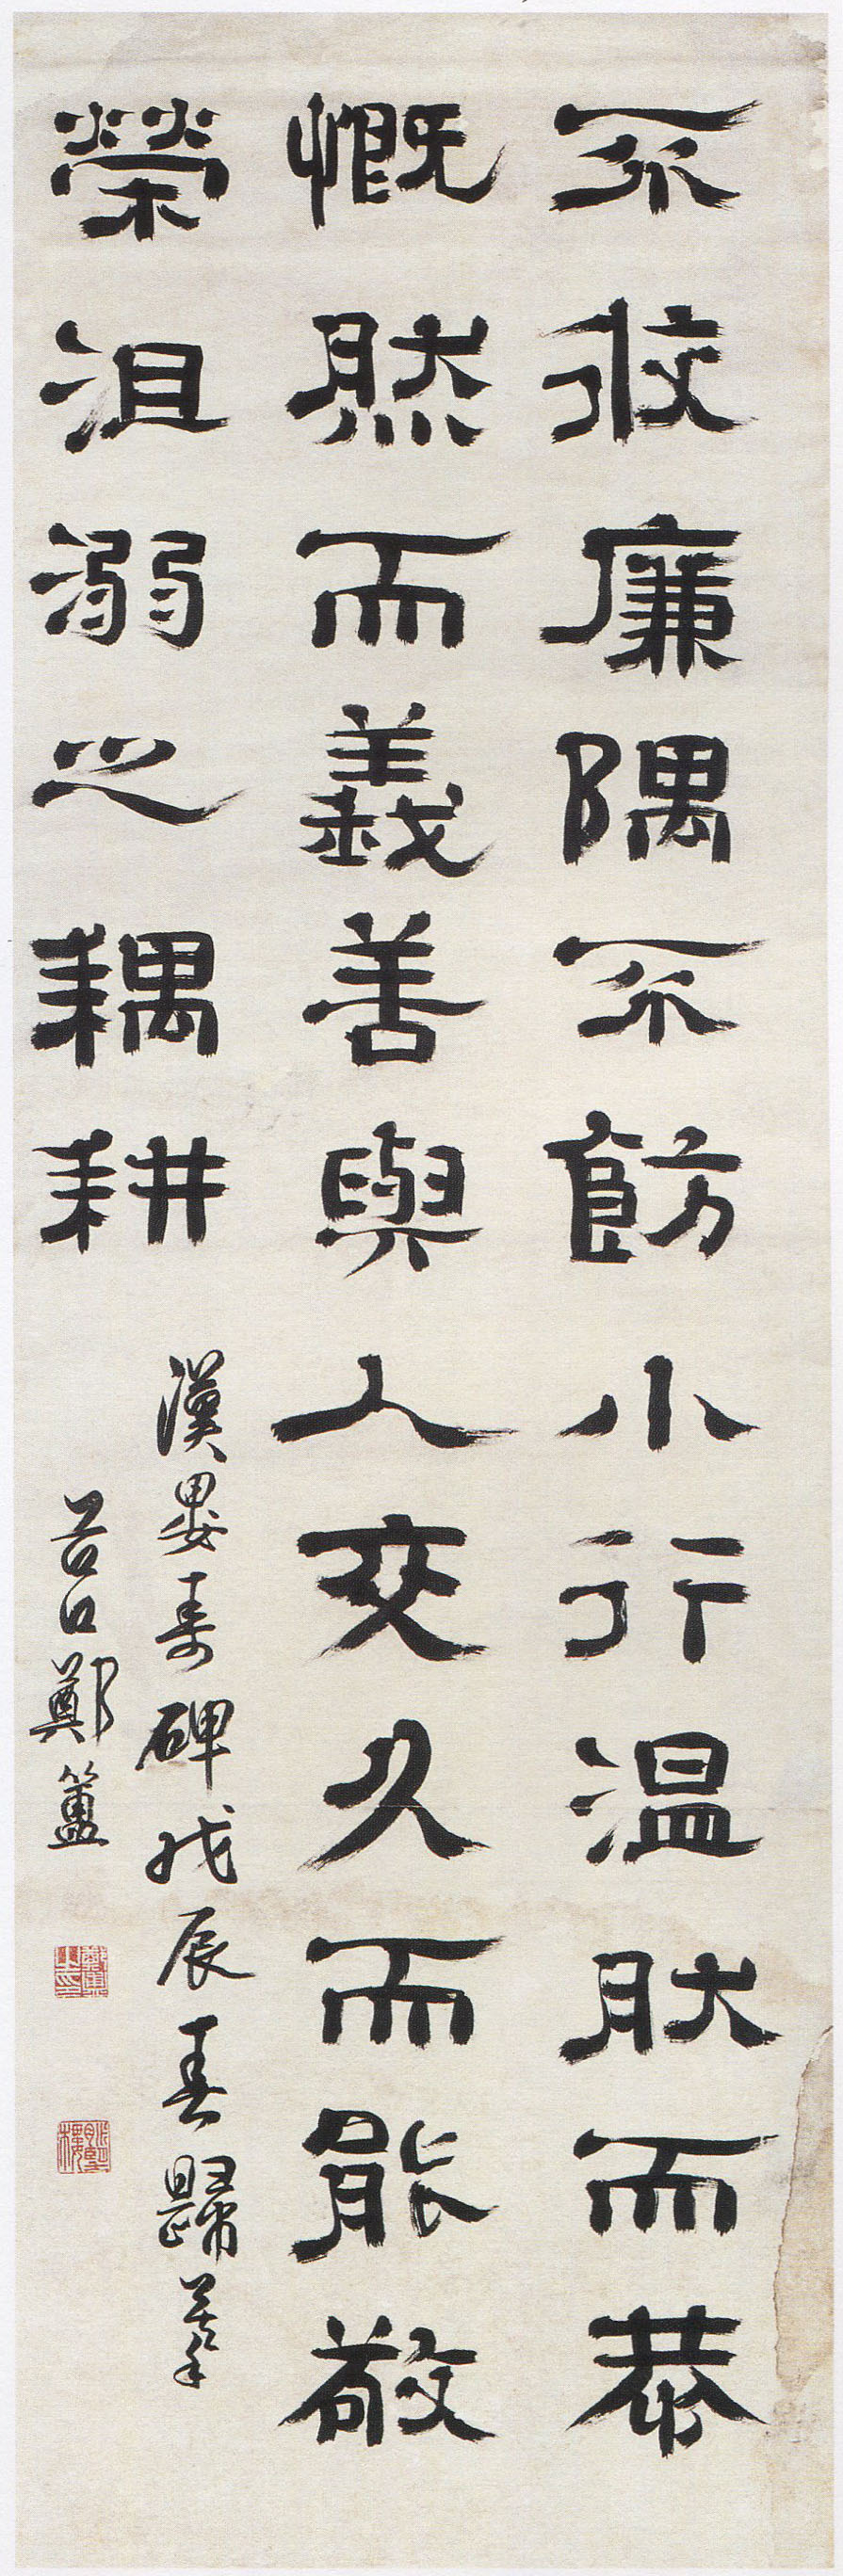 不攸廉隅不飭小行溫肰而恭
慨然而義善與人交久而能敬
榮沮溺之耦耕
漢婁壽碑戊辰春歸摹
谷口鄭簠